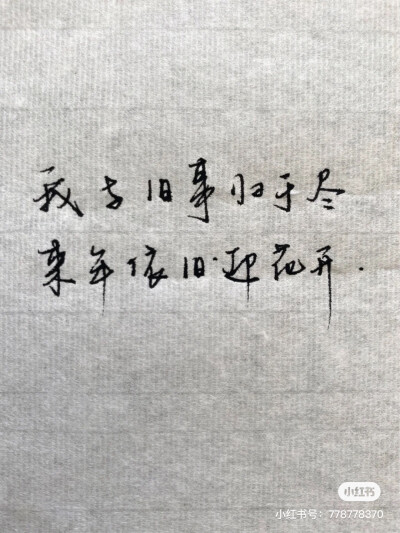 我与旧事归于尽
来年依旧迎花开.
小红书
小红书号：778778370